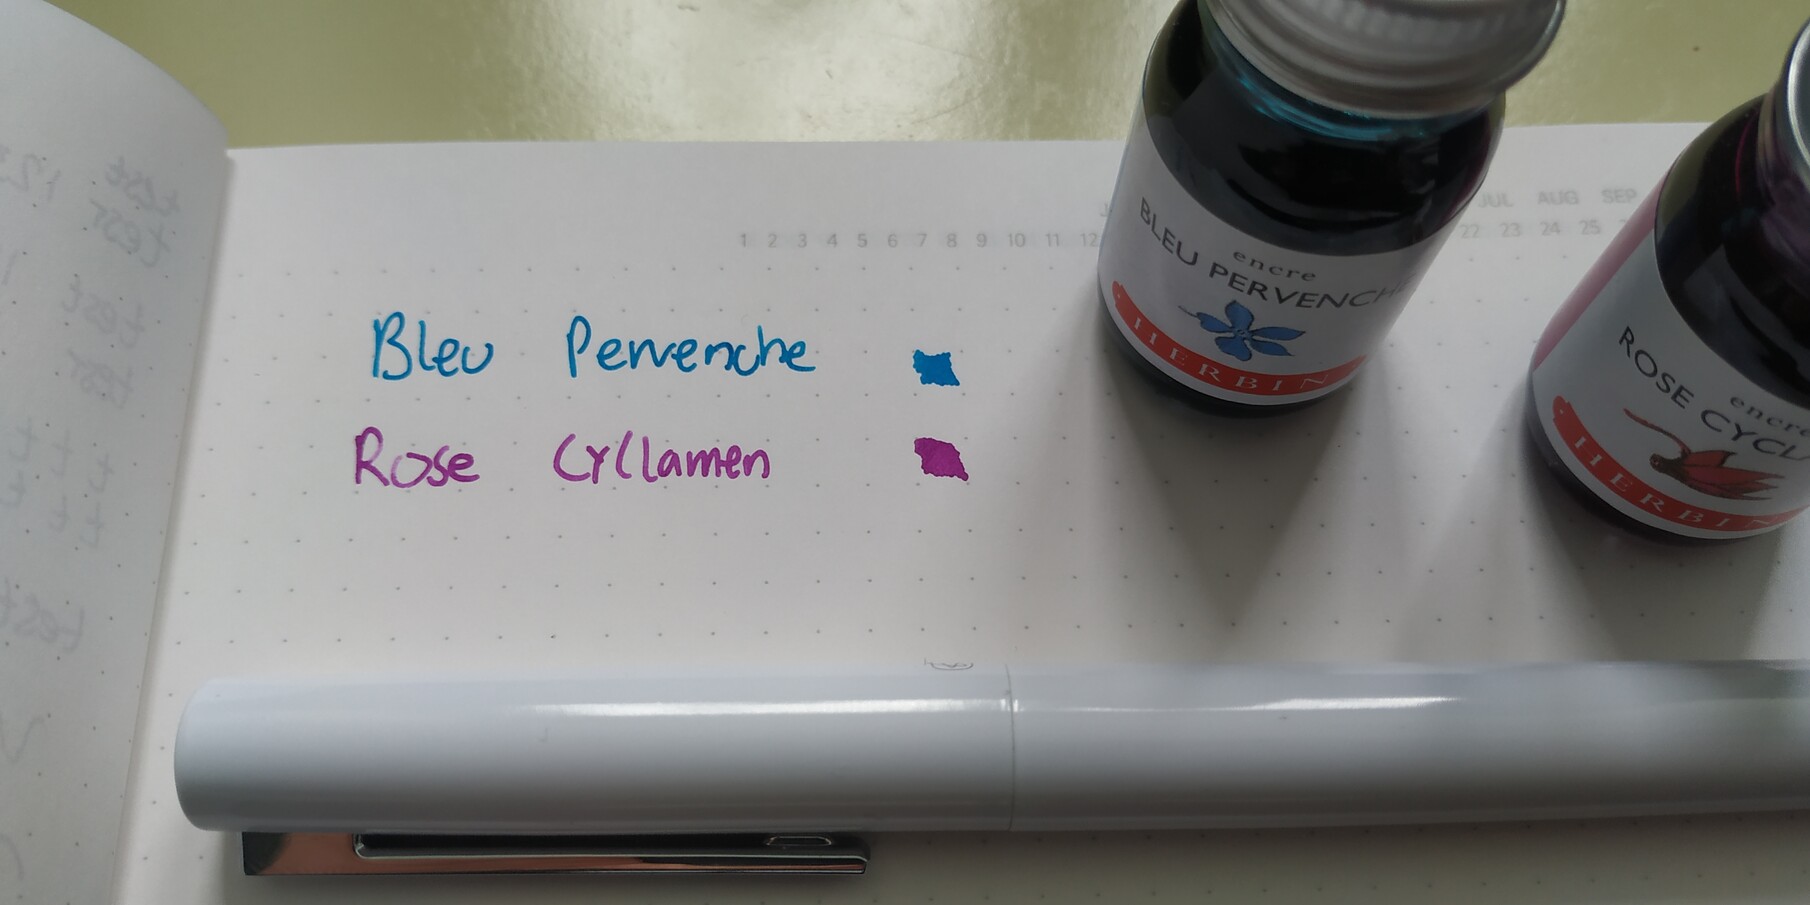 JUL AUG SEP
1 2 3 4 5 6 7 8 9 10 11 12 22 23 24 25
Bleu Pervenche
Rose Cyclamen
encre
BLEU PERVENCH
HERBIN
encre
ROSE CYCLA
HERBIN
test
test
test
test
test